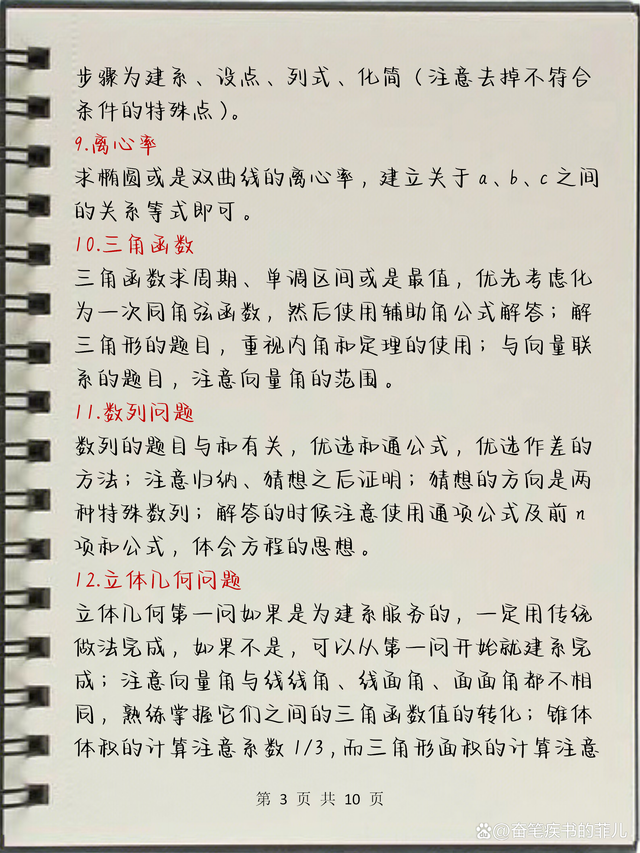 步骤为建系、设点、列式、化简（注意去掉不符合
条件的特殊点）。
9.离心率
求椭圆或是双曲线的离心率，建立关于a、b、c之间
的关系等式即可。
10.三角函数
三角函数求周期、单调区间或是最值，优先考虑化
为一次同角弦函数，然后使用辅助角公式解答；解
三角形的题目，重视内角和定理的使用；与向量联
系的题目，注意向量角的范围。
11.数列问题
数列的题目与和有关，优选和通公式，优选作差的
方法；注意归纳、猜想之后证明；猜想的方向是两
种特殊数列；解答的时候注意使用通项公式及前n
项和公式，体会方程的思想。
12.立体几何问题
立体几何第一问如果是为建系服务的，一定用传统
做法完成，如果不是，可以从第一问开始就建系完
成；注意向量角与线线角、线面角、面面角都不相
同，熟练掌握它们之间的三角函数值的转化；锥体
体积的计算注意系数1/3，而三角形面积的计算注意
第 3 页 共 10 页
@奋笔疾书的菲儿